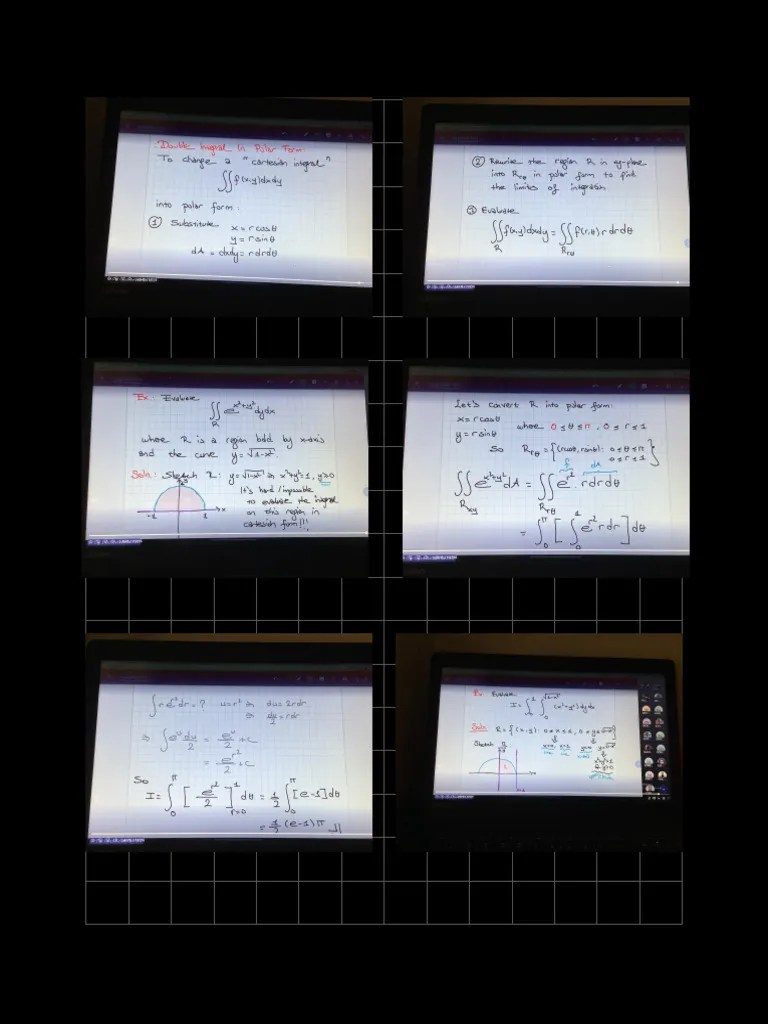 Double Integral In Polar Form:
To change a "cartesian integral"
∬ f(x,y)dxdy
into polar form:
① Substitute x = r cosθ
y = r sinθ
dA = dxdy = rdrdθ
② Rewrite the region R in xy-plane
into Rrθ in polar form to find
the limits of integration
③ Evaluate
∬ f(x,y)dxdy = ∬ f(r,θ) r drdθ
R Rrθ
Ex: Evaluate
∬ e^(x²+y²) dydx
R
where R is a region bdd by x-axis
and the curve y = √(1-x²).
Soln: Sketch R: y = √(1-x²) ⇒ x²+y²=1, y≥0
It's hard/impossible
to evaluate the integral
on this region in
cartesian form!!!
-1 1 x
Let's convert R into polar form:
x = r cosθ
y = r sinθ where 0 ≤ θ ≤ π, 0 ≤ r ≤ 1
So Rrθ = {(rcosθ, rsinθ): 0 ≤ θ ≤ π
0 ≤ r ≤ 1}
f dA
∬ e^(x²+y²) dA = ∬ e^(r²) . rdrdθ
Rxy Rrθ
= ∫₀^π [ ∫₀^1 e^(r²) rdr ] dθ
∫ r e^(r²) dr = ? u = r² ⇒ du = 2rdr
⇒ du/2 = rdr
⇒ ∫ e^u du/2 = e^u/2 + c
= e^(r²)/2 + c
So
I = ∫₀^π [ e^(r²)/2 ]_(r=0)^1 dθ = 1/2 ∫₀^π [e-1] dθ
= 1/2 (e-1) π
Ex: Evaluate
(x²+y²) dydx
Soln: R = {(x,y):
Sketch